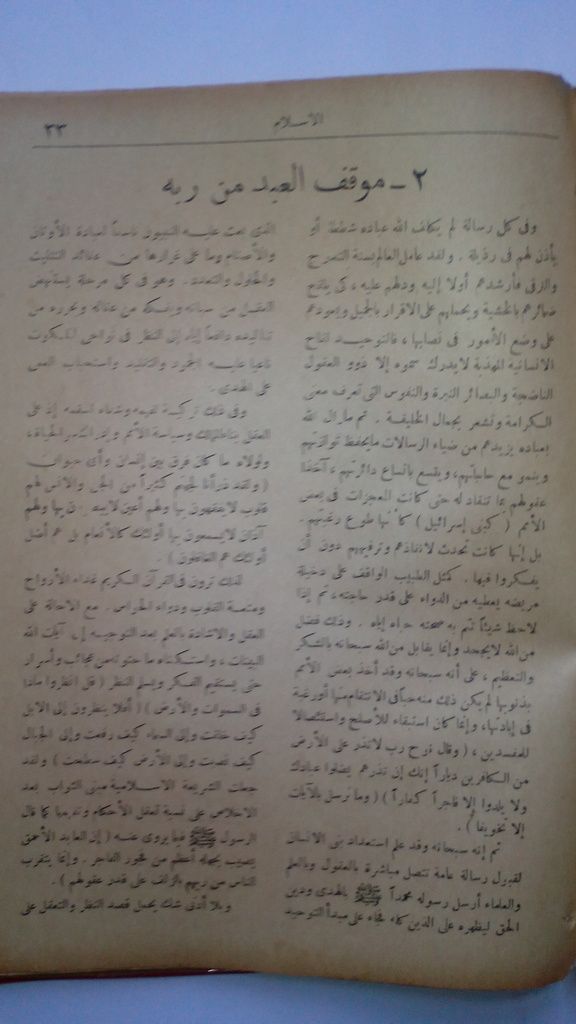 الاسلام
٣٣
٢ - موقف العبد من ربه
وفى كل رسالة لم يكلف الله عباده شططا أو
يأذن لهم فى رذيلة . ولقد عامل العالم بسنة التدرج
والرقى فأرشدهم أولا إليه ودلهم عليه ، كى يفتح
ضمائرهم بالخشية ويحملهم على الاقرار بالجميل ويعودهم
على وضع الأمور فى نصابها ، فالتوحيد نتاج
الانسانية المهذبة لا يدرك سموه إلا ذوو العقول
الناضجة والبصائر النيرة والنفوس التى تعرف معنى
الكرامة وتشعر بجمال الخليقة . ثم مازال الله
بعباده يزيدهم من ضياء الرسالات ما يحفظ توازنهم
وينمو مع حاجياتهم ، ويتسع باتساع دائرتهم ،
عقولهم بما تنقاد له حتى كانت المعجزات فى بعض
الأمم ( كبنى إسرائيل ) كأنها طوع رغبتهم .
بل إنها كانت تحدث لانقاذهم وترفيههم دون أن
يفكروا فيها . كمثل الطبيب الواقف على دخيلة
مريضه يعطيه من الدواء على قدر حاجته ، ثم إذا
لاحظ شيئا تتم به صحته حباه إياه . وذلك فضل
من الله لا يجحد وإنما يقابل من الله سبحانه بالشكر
والتعظيم ، على أنه سبحانه وقد أخذ بعض الأمم
بذنوبها لم يكن ذلك منه حبا فى الانتقام منها أو رغبة
فى إبادتها ، وإنما كان استبقاء للأصلح واستئصالا
للمفسدين ، ( وقال نوح رب لا تذر على الأرض
من الكافرين ديارا إنك إن تذرهم يضلوا عبادك
ولا يلدوا إلا فاجرا كفارا ) ( وما نرسل بالآيات
إلا تخويفا ) .
ثم إنه سبحانه وقد علم استعداد بنى الانسان
لقبول رسالة عامة تتصل مباشرة بالعقول وبالعلم
والعلماء أرسل رسوله محمدا ﷺ بالهدى ودين
الحق ليظهره على الدين كله فجاء على مبدأ التوحيد
الذى بعث عليه النبيون ناسخا لعبادة الأوثان
والأصنام وما على غرارها من عقائد التثليث
والحلول والتعدد . وهو فى كل مرحلة يستنهض
العقل من سباته ويفكه من عقاله ويحرره من
تقاليده دافعا إياه إلى النظر فى نواحى الملكوت
ناعيا عليه الجمود والتقليد واستحباب العمى
على الهدى .
وفى ذلك تزكية لقيمه وثناء لنفسه إذ على
العقل
ولولاه ما كان فرق بين إنسان وأى حيوان
( ولقد ذرأنا لجهنم كثيرا من الجن والانس لهم
قلوب لا يفقهون بها ولهم أعين لا يبصرون بها ولهم
آذان لا يسمعون بها أولئك كالأنعام بل هم أضل
أولئك هم الغافلون ) .
لذلك ترون فى القرآن الكريم غذاء الأرواح
ومتعة القلوب ودواء الحواس . مع الاحالة على
العقل والاشادة بالعلم بعد التوجيه إلى آيات الله
البينات ، واستكناه ما حوته من عجائب وأسرار
حتى يستقيم الفكر ويسلم النظر ( قل انظروا ماذا
فى السموات والأرض ) ( أفلا ينظرون إلى الابل
كيف خلقت وإلى السماء كيف رفعت وإلى الجبال
كيف نصبت وإلى الأرض كيف سطحت ) ولقد
جعلت الشريعة الاسلامية مبنى الثواب بعد
الاخلاص على نسبة تعقل الأحكام وتدبرها كما قال
الرسول ﷺ فيما يروى عنه ( إن العابد الأحمق
يصيب بجهله أعظم من فجور الفاجر . وإنما يتقرب
الناس من ربهم بالزلف على قدر عقولهم ) .
وبلا أدنى شك يحمل قصد النظر والتعقل على